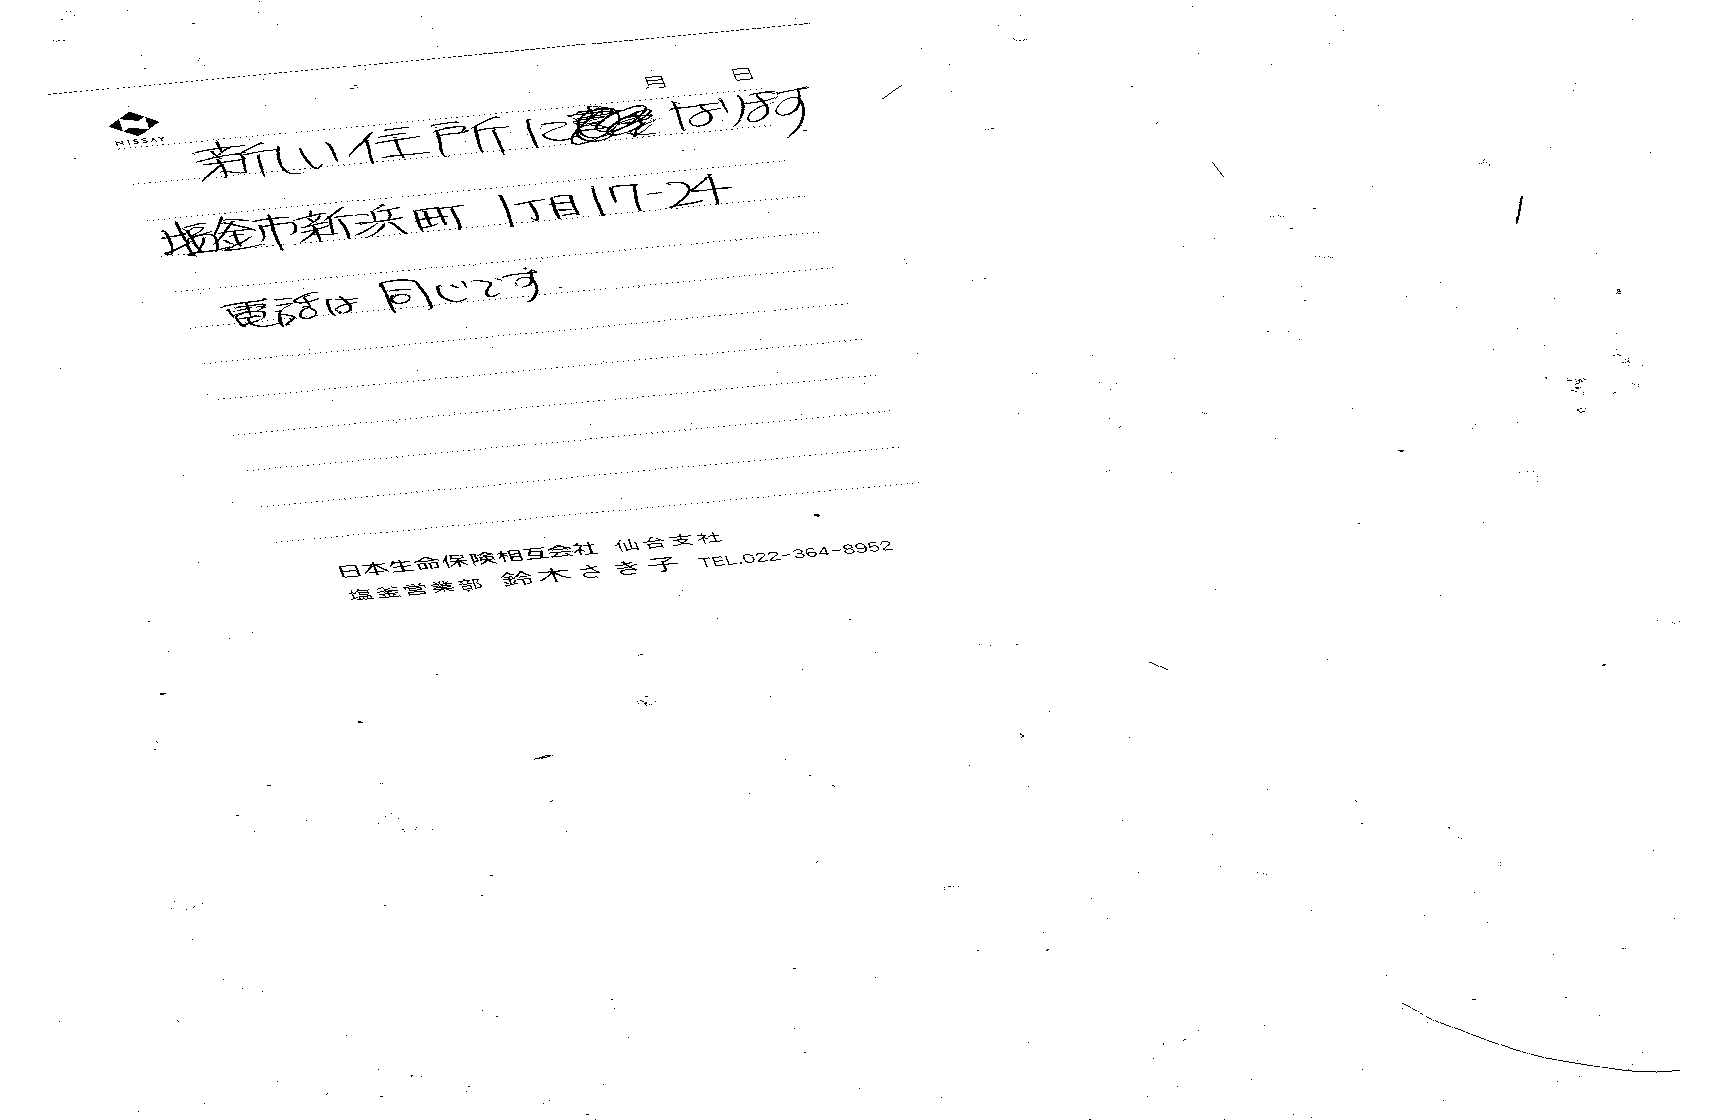 月 日
NISSAY
新しい住所に なります
塩釜市新浜町 1丁目17-24
電話は 同じです
日本生命保険相互会社 仙台支社
塩釜営業部 鈴木さき子 TEL.022-364-8952